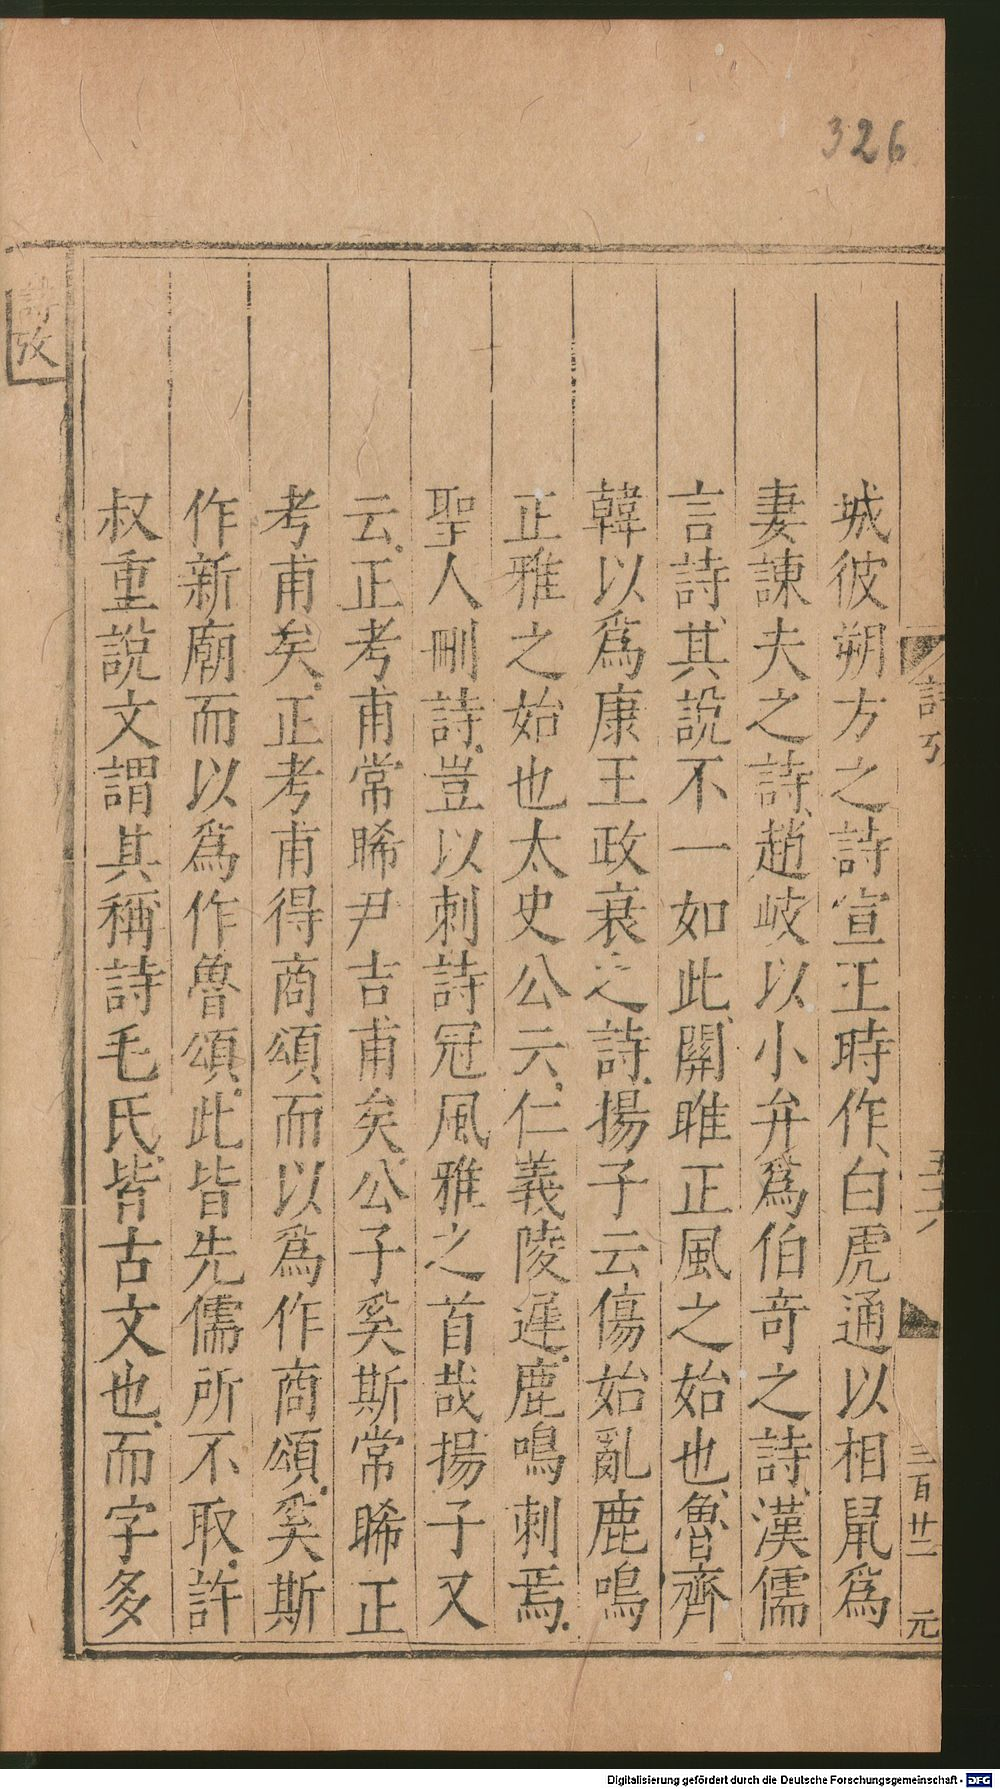 326
詩攷
三百廿二 元
城彼朔方之詩宣王時作、白虎通以相鼠為
妻諫夫之詩、趙岐以小弁為伯奇之詩、漢儒
言詩、其說不一如此、關雎正風之始也、魯齊
韓以為康王政衰之詩、揚子云傷始亂鹿鳴
正雅之始也太史公云、仁義陵遲、鹿鳴刺焉、
聖人刪詩、豈以刺詩冠風雅之首哉揚子又
云、正考甫常睎尹吉甫矣、公子奚斯常睎正
考甫矣、正考甫得商頌、而以為作商頌、奚斯
作新廟而以為作魯頌、此皆先儒所不取、許
叔重說文謂其稱詩毛氏、皆古文也、而字多
詩攷
Digitalisierung gefördert durch die Deutsche Forschungsgemeinschaft - DFG